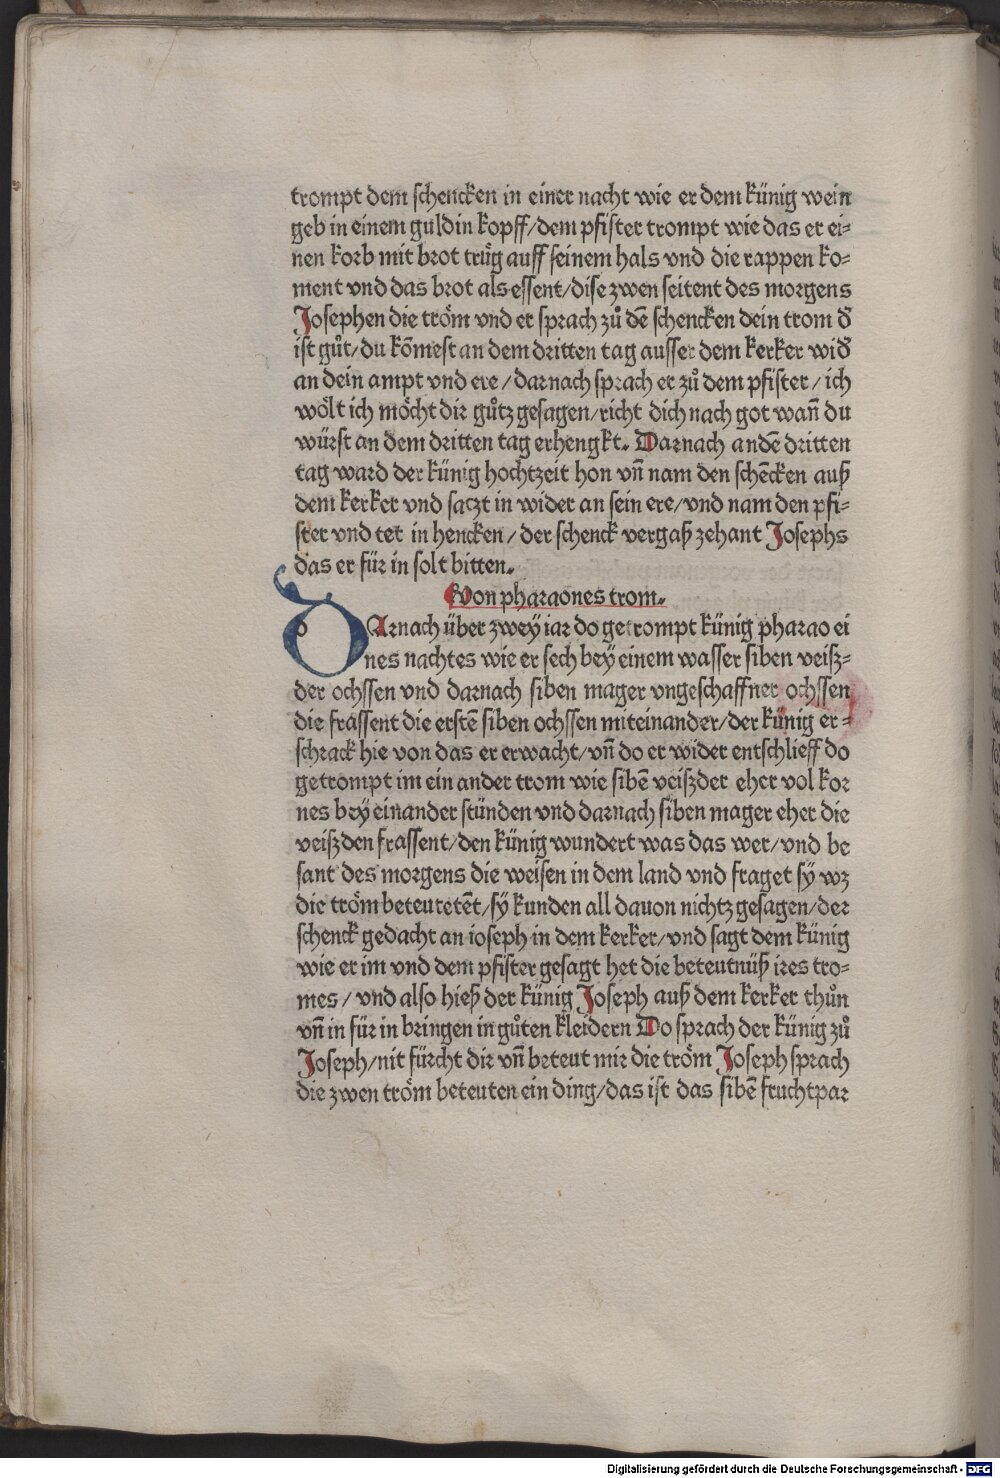 trompt dem schencken in einer nacht wie er dem künig wein
geb in einem guldin kopff/dem pfister trompt wie das er ei⸗
nen korb mit brot trůg auff seinem hals vnd die rappen ko⸗
ment vnd das brot als essent/dise zwen seitent des morgens
Josephen die tröm vnd er sprach zů dē schencken dein trom đ
ist gůt/du kōmest an dem dritten tag ausser dem kerker wiđ
an dein ampt vnd ere/darnach sprach er zů dem pfister/ich
wölt ich möcht dir gůtz gesagen/richt dich nach got wañ du
würst an dem dritten tag erhengkt. Darnach an dē dritten
tag ward der künig hochtzeit hon vñ nam den schēcken auß
dem kerker vnd saczt in wider an sein ere/vnd nam den pfi⸗
ster vnd tet in hencken/der schenck vergaß zehant Josephs
das er für in solt bitten.
Von pharaones trom.
DArnach über zwey iar do getrompt künig pharao ei
nes nachtes wie er sech bey einem wasser siben veisz⸗
der ochssen vnd darnach siben mager vngeschaffner ochssen
die frassent die erstē siben ochssen miteinander/der künig er⸗
schrack hie von das er erwacht/vñ do er wider entschlieff do
getrompt im ein ander trom wie sibē veiszder eher vol kor
nes bey einander stünden vnd darnach siben mager eher die
veiszden frassent/den künig wundert was das wer/vnd be
sant des morgens die weisen in dem land vnd fraget sy wz
die tröm beteutetēt/sy kunden all dauon nichtz gesagen/der
schenck gedacht an ioseph in dem kerker/vnd sagt dem künig
wie er im vnd dem pfister gesagt het die beteutnüß ires tro⸗
mes/vnd also hieß der künig Joseph auß dem kerker thůn
vñ in für in bringen in gůten kleidern Do sprach der künig zů
Joseph/nit fürcht dir vñ beteut mir die tröm Joseph sprach
die zwen tröm beteuten ein ding/das ist das sibē fruchtpar
Digitalisierung gefördert durch die Deutsche Forschungsgemeinschaft - DFG